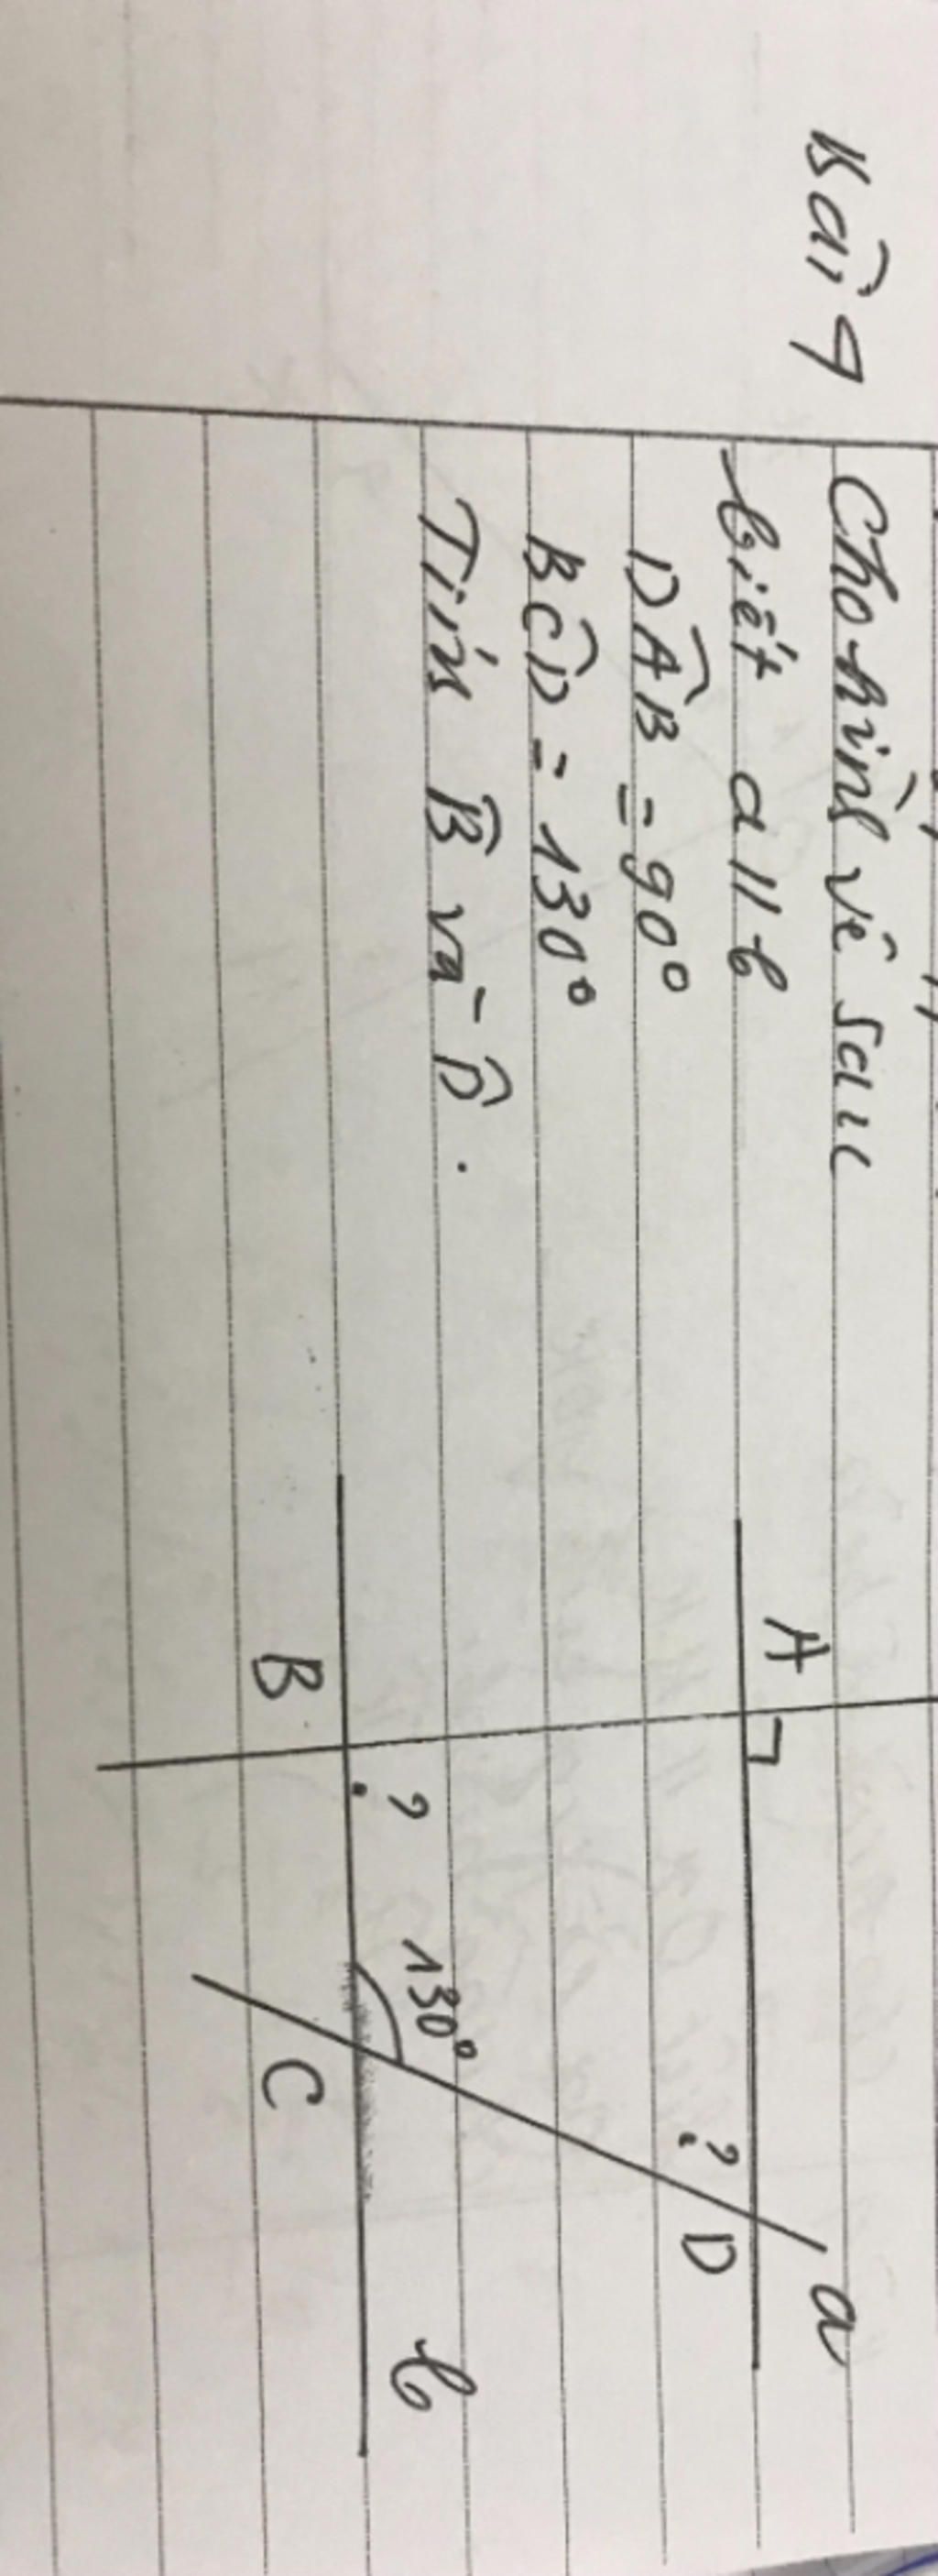 Bài 4
Cho hình vẽ sau
biết a // b
DÂB = 90°
BĈD = 130°
Tính B̂ và D̂.
A
a
? D
B ? 130° C
b